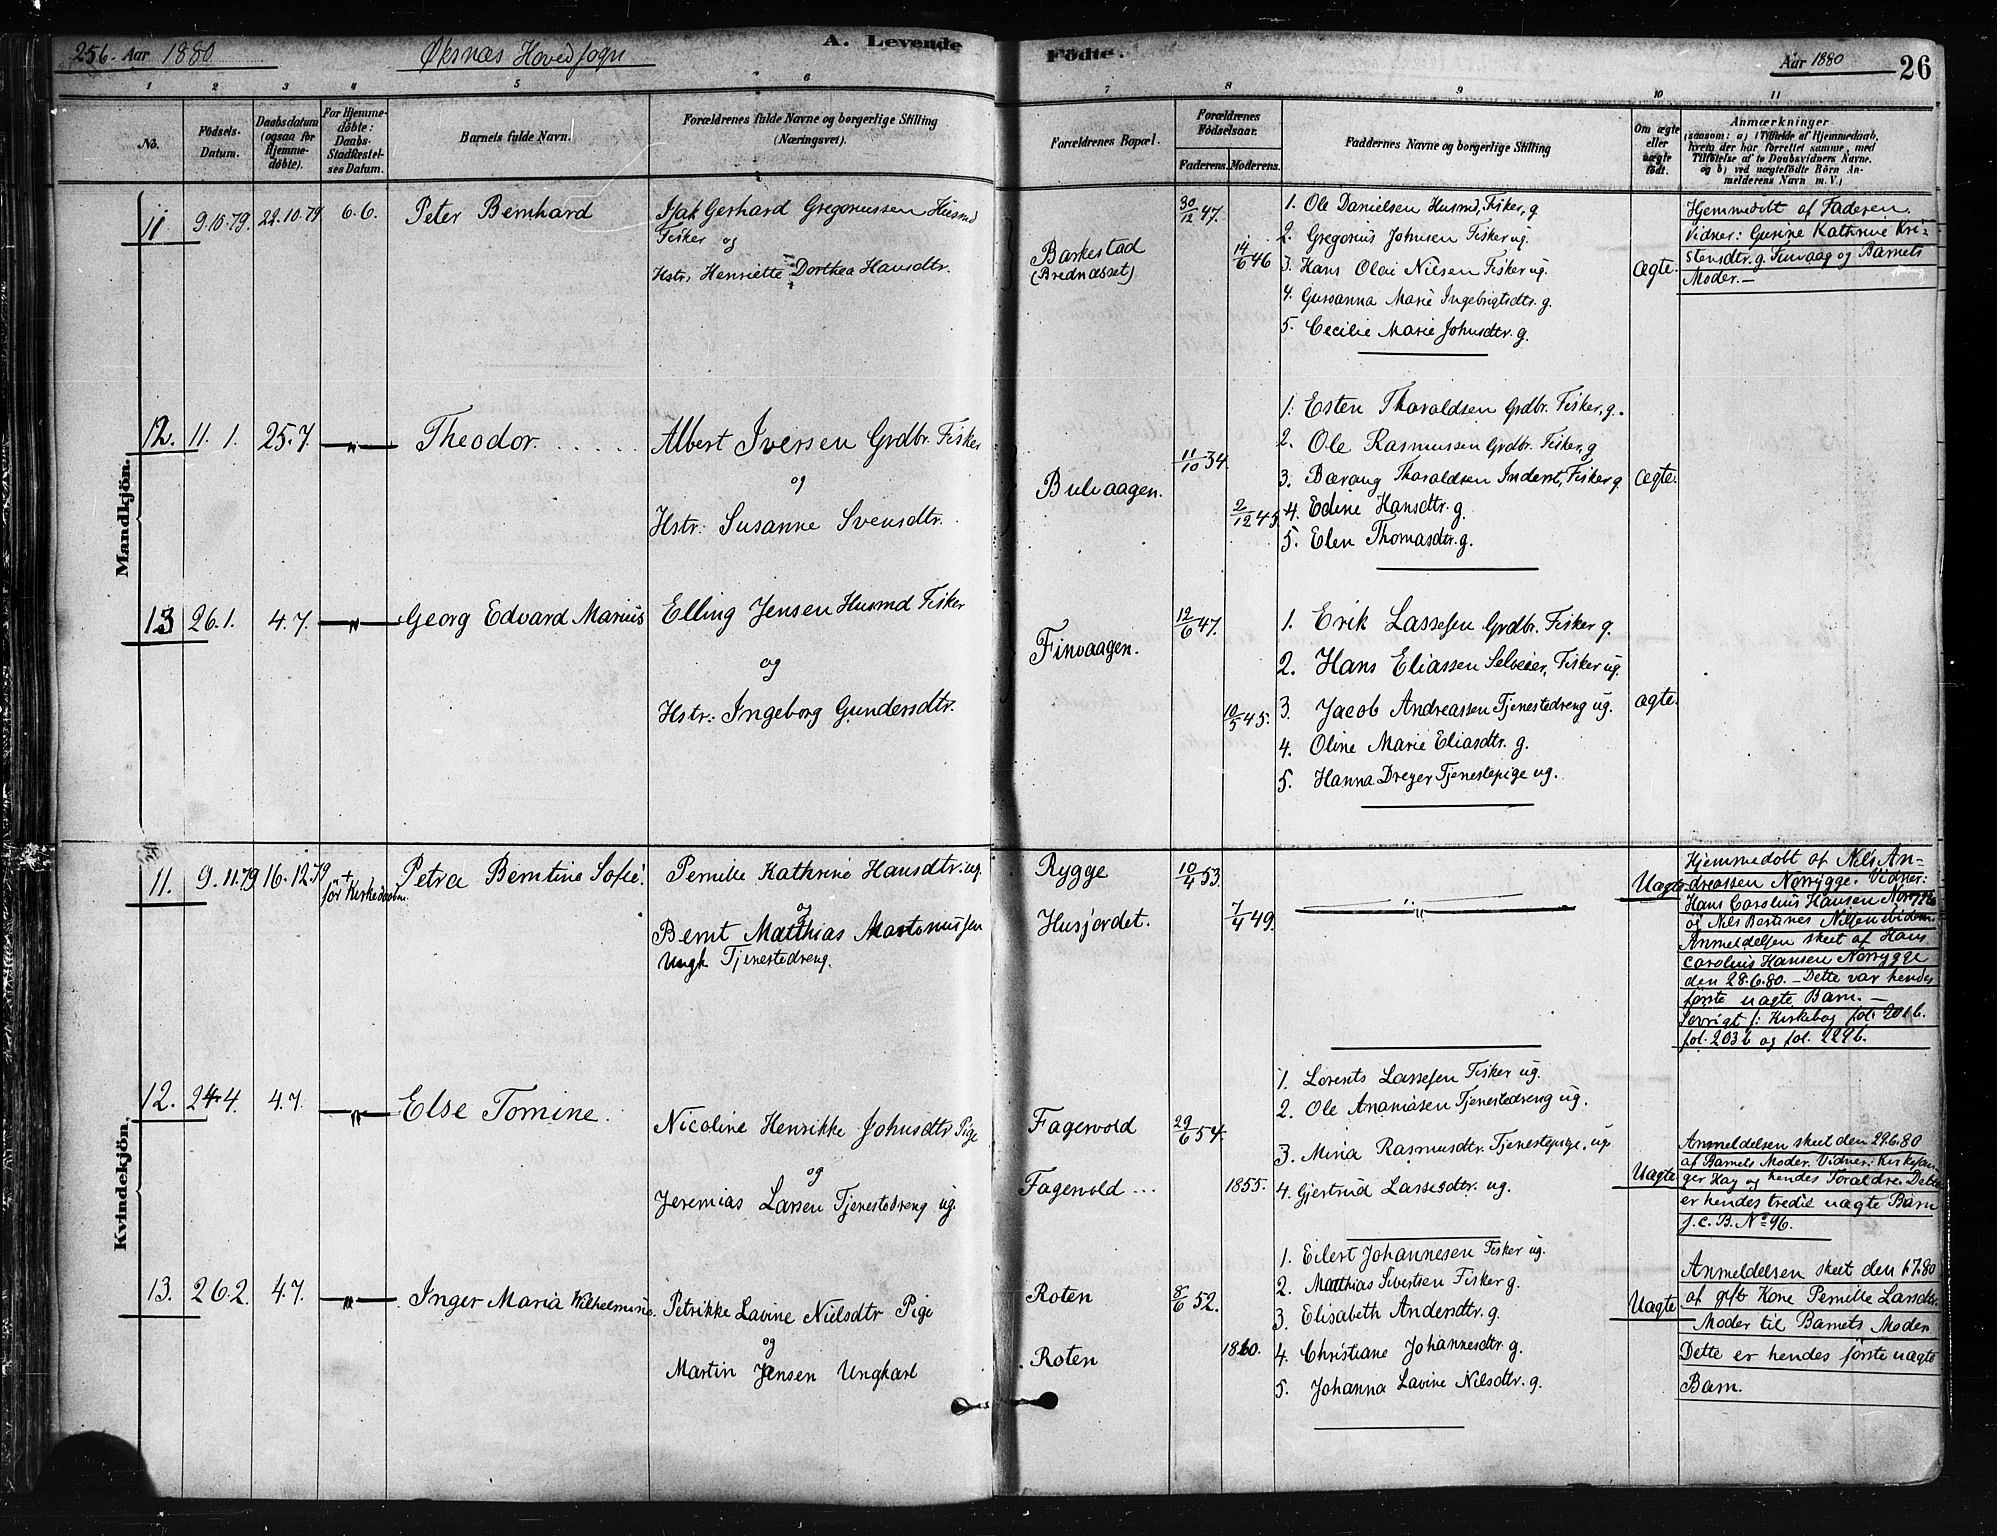 256. Aar 1880
Øksnæs Hovedsogn
A. Levende
Födte.
Aar 1880
26
1 2 3 4 5 6 7 8 9 10 11
No.
Födsels-
Datum.
Daabsdatum
(ogsaa for
Hjemme-
döbte).
For Hjemme-
döbte:
Daabs-
Stadfæstel-
ses Datum.
Barnets fulde Navn.
Forældrenes fulde Navne og borgerlige Stilling
(Næringsvei).
Forældrenes Bopæl.
Forældrenes
Födselsaar.
Faderens. Moderens.
Faddernes Navne og borgerlige Stilling
Om ægte
eller
uægte
födt.
Anmærkninger
(saasom: a) i Tilfælde af Hjemmedaab,
hvem der har forrettet samme, med
Tilföielse af to Daabsvidners Navne,
og b) ved uægtefödte Börn An-
melderens Navn m. V.)
Mandkjön.
11 9.10.79. 22.10.79 6.6. Peter Bernhard
Isak Gerhard Gregoriussen Husmd
Fisker og
Hstr. Henriette Dorthea Hansdtr.
Barkestad
(Brednæsset)
30/12 47.
14/6 46
1. Ole Danielsen Husmd, Fisker, g
2. Gregorius Johnsen Fisker ug.
3. Hans Olai Nilsen Fisker ug.
4. Gusanna Marie Ingebrigtsdtr. g.
5. Cecilie Marie Johnsdtr. g.
ægte.
Hjemmedøbt af Faderen.
Vidner: Gurine Kathrine Kri-
stensdtr. g. Finvaag og Barnets
Moder.—
12. 11. 1. 25.7. —"— Theodor. . . . . .
Albert Iversen Grdbr. Fisker
og
Hstr: Susanne Svensdtr.
Bulvaagen.
11/10 34.
2/12 45.
1. Esten Tharaldsen Grdbr. Fisker, g.
2. Ole Rasmussen Grdbr. Fisker, g
3. Barang Tharaldsen Inderst, Fisker g.
4. Edine Hansdtr. g.
5. Elen Thomasdtr. g.
ægte.
13 26.1. 4.7. —"— Georg Edvard Marius
Elling Jensen Husmd Fisker
og
Hstr: Ingeborg Gundersdtr.
Finvaagen.
12/6 47.
10/5 45.
1. Erik Lassesen Grdbr. Fisker g.
2. Hans Eliassen Selveier, Fisker ug.
3. Jacob Andreassen Tjenestedreng ug.
4. Oline Marie Eliasdtr. g.
5. Hanna Dreyer Tjenestepige ug.
ægte.
Kvindekjön.
11. 9.11.79 16.12.79 "+ för Kirkedaaben Petra Berntine Sofie.
Pernille Kathrine Hansdtr. ug.
og
Bernt Matthias Mortenussen
Ungk Tjenestedreng.
Rygge
Husjordet.
10/4 53.
7/4 49.
—"—
Uægte
Hjemmedøbt af Nils An-
dreassen Norrygge. Vidner:
Hans Carolius Hansen Norrygge
og Nils Bertines Nilsen ibidem
Anmeldelsen skeet af Hans
Carolius Hansen Norrygge
den 28.6.80. — Dette var hendes
første uægte Barn. —
Iøvrigt f: Kirkebog fol. 201b.
fol. 203b og fol. 229b.
12. 24.4. 4.7. —"— Else Tomine.
Nicoline Henrikke Johnsdtr Pige
og
Jeremias Larsen Tjenestedreng ug.
Fagervold
Fagervold ...
29/6 54.
1855.
1. Lorents Lassesen Fisker ug.
2. Ole Ananiasen Tjenestedreng ug.
3. Mina Rasmusdtr. Tjenestepige, ug.
4. Gjertrud Lassesdtr. ug.
Uægte
Anmeldelsen skeet den 29.6.80
af Barnets Moder. Vidner: Kirkesan-
ger Hay og hendes Foraldre. Dette
er hendes tredie uægte Barn
f. c. B. No 96.
13. 26.2. 4.7. —"— Inger Maria Wilhelmine.
Petrikke Lavine Nielsdtr Pige
og
Martin Jensen Ungkarl
Roten
Roten
8/6 52.
1860.
1. Eilert Johannesen Fisker ug.
2. Matthias Sivertsen Fisker g.
3. Elisabeth Andersdtr. g.
4. Christiane Johannesdtr. g.
5. Johanna Lavine Nilsdtr. g.
Uægte
Anmeldelsen skeet den 1.7.80
af gift Kone Pernille Larsdtr.
Moder til Barnets Moder
Dette er hendes første uægte
Barn.